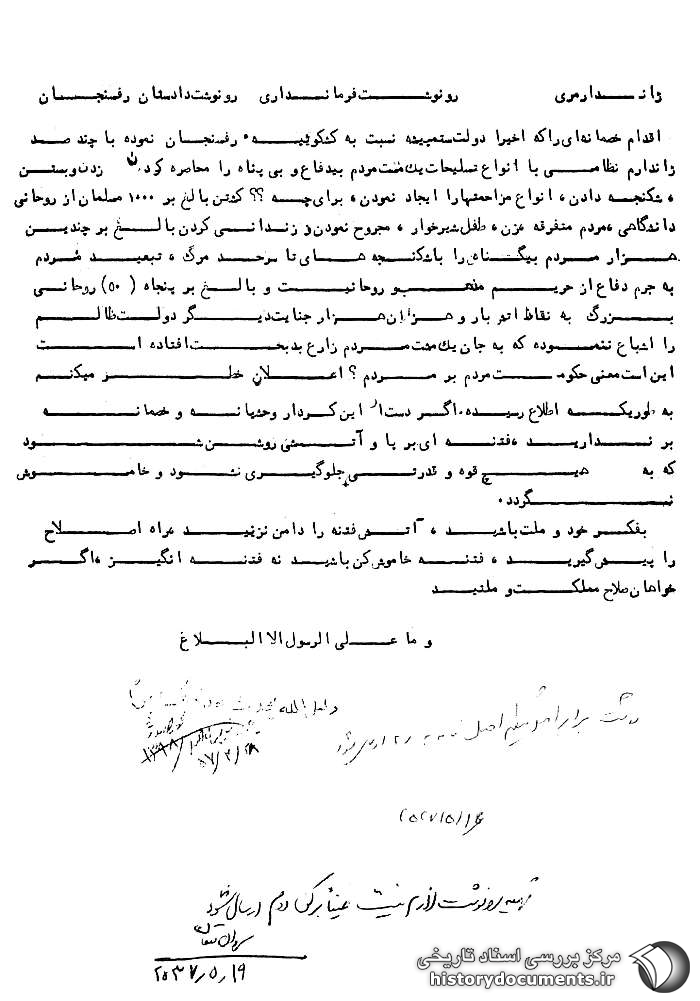 ژاندارمری رونوشت فرمانداری رونوشت دادستان رفسنجان
اقدام خصمانه‌ای را که اخیرا دولت ستمپیشه نسبت به کشکوئیه رفسنجان نموده با چند صد
ژاندارم نظامی با انواع تسلیحات یک مشت مردم بیدفاع و بی پناه را محاصره کردن زدن و بستن
، شکنجه دادن ، انواع مزاحمتهارا ایجاد نمودن ، برای چه ؟؟ کشتن بالغ بر ۱۰۰۰ مسلمان از روحانی
دانشگاهی ، مردم متفرقه ، زن ، طفل شیرخوار ، مجروح نمودن و زندانی کردن بالغ بر چندین
هزار مردم بیگناه را باشکنجه های تا سرحد مرگ ، تبعید مردم
به جرم دفاع از حریم مذهب و روحانیت و بالغ بر پنجاه ( ۵۰ ) روحانی
بزرگ به نقاط اتو بار و هزاران هزار جنایت دیگر دولت ظالم
را اشباع ننموده که به جان یک مشت مردم زارع بدبخت افتاده است
این است معنی حکومت مردم بر مردم ؟ اعلان خطر میکنم
به طوریکه اطلاع رسیده . اگر دست از این کردار وحشیانه و خصمانه
بر ندارید ، فتنه ای بر پا و آتشی روشن شود
که به هیچ قوه و قدرتی جلوگیری نشود و خاموش
نگردد .
بفکر خود و ملت باشید ، آتش فتنه را دامن نزنید ، راه اصلاح
را پیش گیرید ، فتنه خاموش کن باشید نه فتنه انگیز ، اگر
خواهان صلاح مملکت و ملتید
و ما علی الرسول الا البلاغ
۱۳۹۸/
۵۷/۳/۲۸
۲۵۳۷/۵/۱۶
تهیه رونوشت عیناً برکن دوم ارسال شود
۲۵۳۷/۵/۱۹
مرکز بررسی اسناد تاریخی
historydocuments.ir